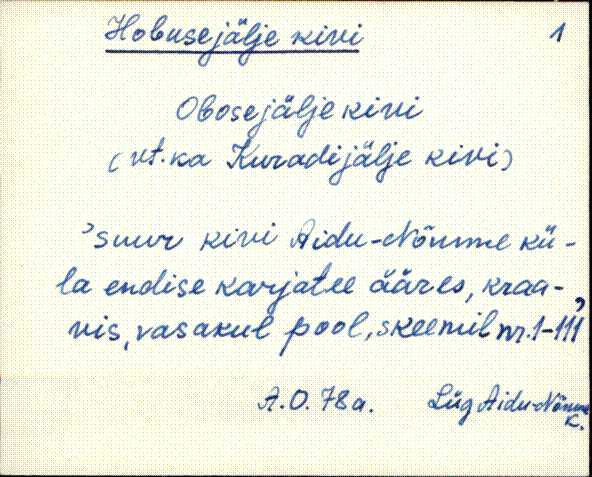 Hobusejälje kivi 1
Obosejälje kivi
(vt. ka Kuradijälje kivi)
’suur kivi Aidu-Nõmme kü-
la endise karjatee ääres, kraa-
vis, vasakul pool, skeemil nr. 1-111’
A.O. 78a. Lüg Aidu-Nõmme
K.